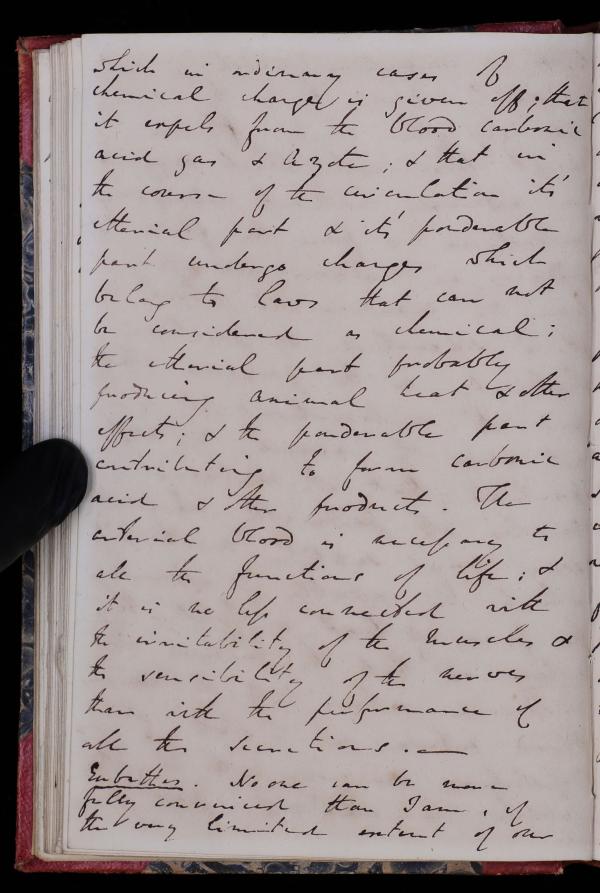 which in ordinary cases of
chemical change is given off; that
it expels from the blood carbonic
acid gas & Azote; & that in
the course of the circulation it's
etherial part & it's ponderable
part undergo changes which
belong to laws that can not
be considered as chemical;
the etherial part probably
producing animal heat & other
effects; & the ponderable part
contributing to form carbonic
acid & other products. The
arterial blood is necessary to
all the functions of life; &
it is no less connected with
the irritability of the muscles &
the sensibility of the nerves
than with the performance of
all the secretions. —
Eubathes. No one can be more
fully convinced than I am, of
the very limited extent of our